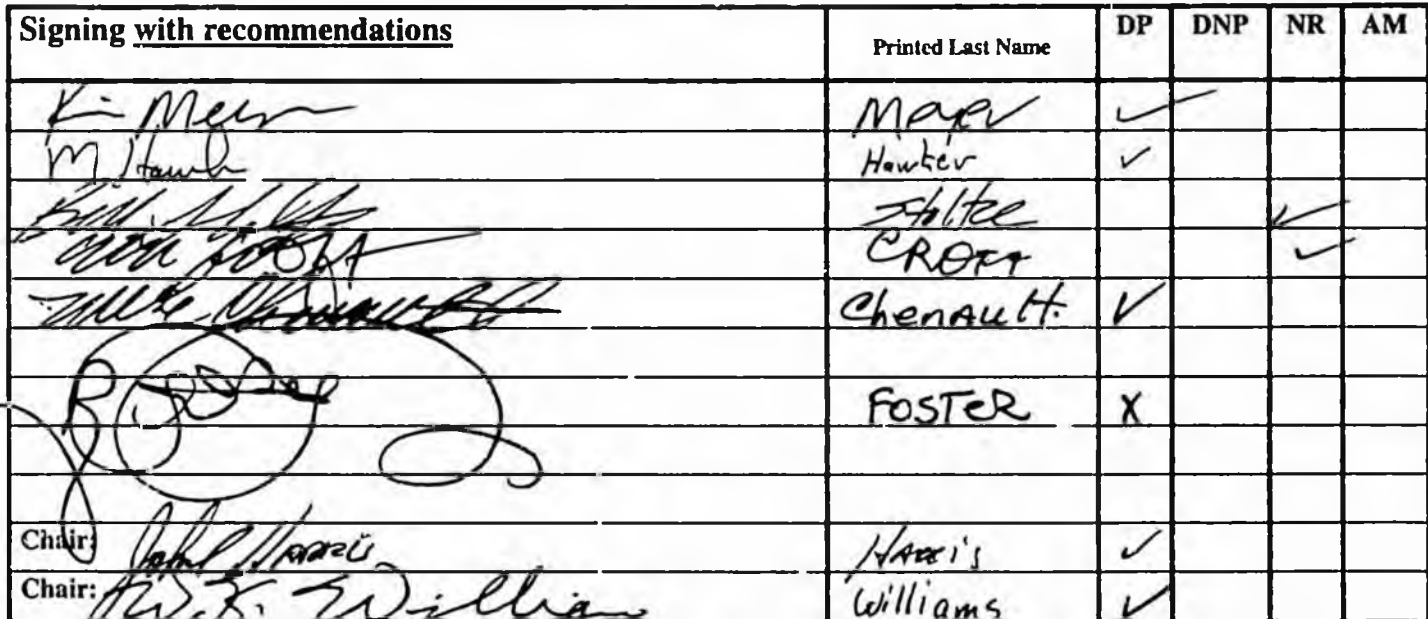 Signing with recommendations Printed Last Name DP DNP NR AM
K Meyer Meyer ✓
M Hawker Hawker ✓
Stoltze ✓
CROFT ✓
Mike Chenault Chenault. ✓
FOSTER X
Chair: John Harris Harris ✓
Chair: W.K. Williams Williams ✓